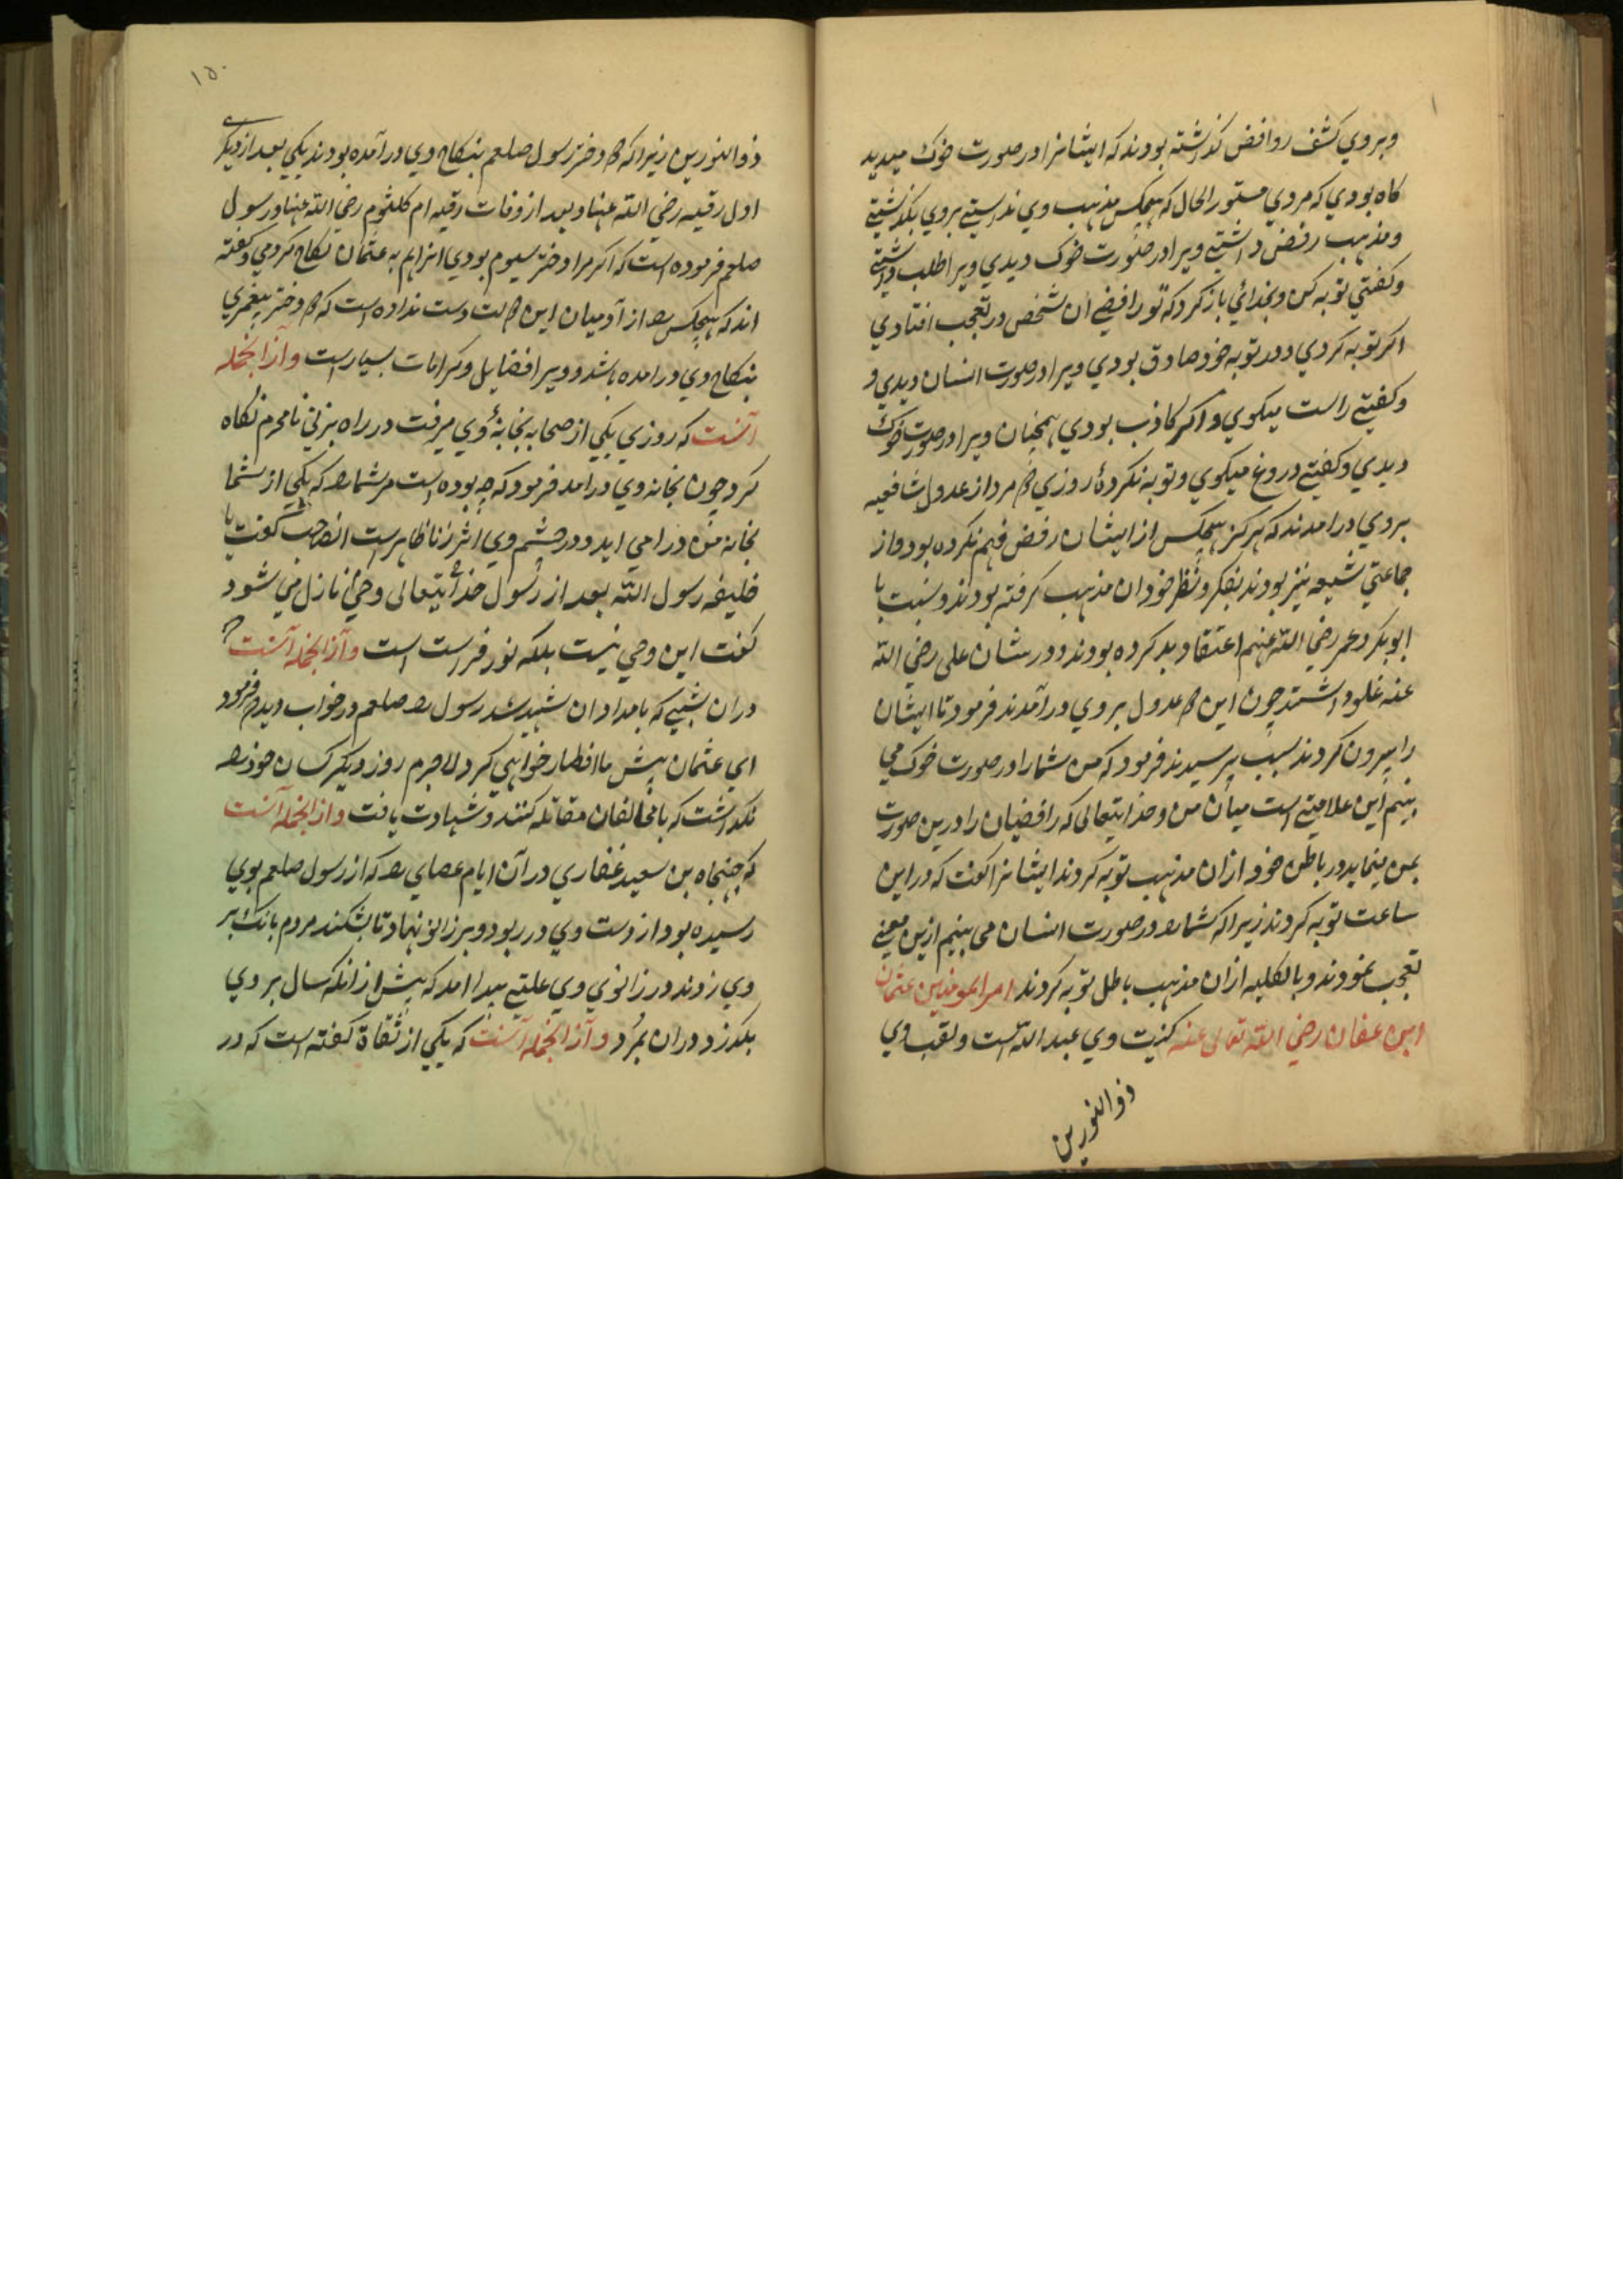 وبروي كشف روافض گذاشته بودند كه ایشانرا در صورت خوك میدید
كاه بودي كه مردي مستور الحال كه هیچكس مذهب وي ندانستی بروي بگذشتی
ومذهب رفض داشتی ویرا در صورت خوك دیدي ویرا طلب داشتی
وكفتي توبه كن وبخداي بازكرد كه تو رافضي ان شخص در تعجب افتادي
اكر توبه كردي ودر توبه خود صادق بودي ویرا در صورت انسان دیدي و
وكفتي راست میكوي واكر كاذب بودي همچنان ویرا در صورت خوك
دیدي وكفتي دروغ میكوي وتوبه نكرده روزي دو مرد از عدول شافعیه
بروي درامدند كه هركز هیچكس از ایشان رفض فهم نكرده بود واز
جماعتي شیعه نیز بودند بفكر ونظر خود ان مذهب كرفته بودند ونسبت با
ابوبكر وعمر رضي الله عنهم اعتقاد بد كرده بودند ودر شان علی رضي الله
عنه غلو داشتند چون این دو عدول بروي درآمدند فرمود تا ایشان
را بیرون كردند سبب پرسیدند فرمود كه من شما را در صورت خوك مي
بینم این علامتي است میان من وخدایتعالی كه رافضیان را درین صورت
بمن مینماید در باطن خود ازان مذهب توبه كردند ایشانرا كفت كه دراین
ساعت توبه كردند زیرا كه شمارا در صورت انسان می بینم ازین معني
تعجب نمودند وبالكلیه ازان مذهب باطل توبه كردند امیر المومنین عثمان
ابن عفان رضي الله تعالی عنه كنیت وي عبد الله است ولقب وي
ذو النورین
۱۵۰
ذو النورین زیرا كه دو دختر رسول صلعم بنكاح وي درآمده بودند یكي بعد از دیكري
اول رقیه رضي الله عنها وبعد از وفات رقیه ام كلثوم رضي الله عنها ورسول
صلعم فرموده است كه اكر مرا دختر سیوم بودي انرا هم به عثمان نكاح كردمي وكفته
اند كه هیچكس را از آدمیان این دولت دست نداده است كه دو دختر پیغمبري
بنكاح وي درامده باشد وویرا فضایل وكرامات بسیار است وازانجمله
آنست كه روزي یكي از صحابه بخانهٔ وي میرفت در راه بزني نامحرم نكاه
كرد چون بخانه وي درامد فرمود كه چه بوده است مر شما را كه یكي از شما
بخانه من درامي اید ودر چشم وي اثر زنا ظاهر است انصاحب كفت یا
خلیفه رسول الله بعد از رسول خدایتعالی وحي نازل مي شود
كفت این وحي نیست بلكه نور فراست است وازانجمله آنست كه
دران شبي كه بامدادان شهید شد رسول را صلعم در خواب دید فرمود
اي عثمان پیش ما افطار خواهي كرد لاجرم روز دیكر كسان خود را
نكذاشت كه با مخالفان مقاتله كنند وشهادت یافت وازانجمله آنست
كه جهنجاه بن سعید غفاري در آن ایام عصاي را كه از رسول صلعم بوي
رسیده بود از دست وي در ربود وبر زانو نهاد تا بشكند مردم بانك بر
وي زدند در زانوي وي علتي پیدا امد كه پیش ازانكه سال بر وي
بكذرد دران بمرد وازانجمله آنست كه یكي از ثقاة كفته است كه در